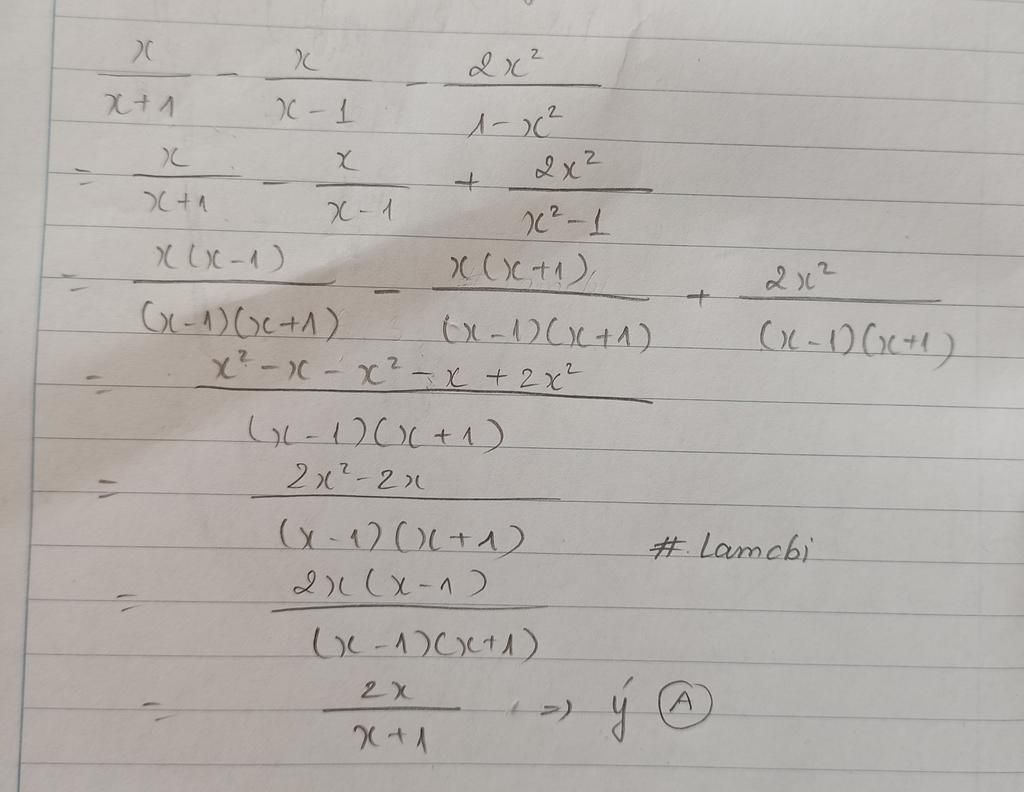 x/(x+1) - x/(x-1) - 2x²/(1-x²)
= x/(x+1) - x/(x-1) + 2x²/(x²-1)
= x(x-1)/((x-1)(x+1)) - x(x+1)/((x-1)(x+1)) + 2x²/((x-1)(x+1))
= (x²-x-x²-x+2x²)/((x-1)(x+1))
= (2x²-2x)/((x-1)(x+1))
# Lamchi
= 2x(x-1)/((x-1)(x+1))
= 2x/(x+1) => ý A